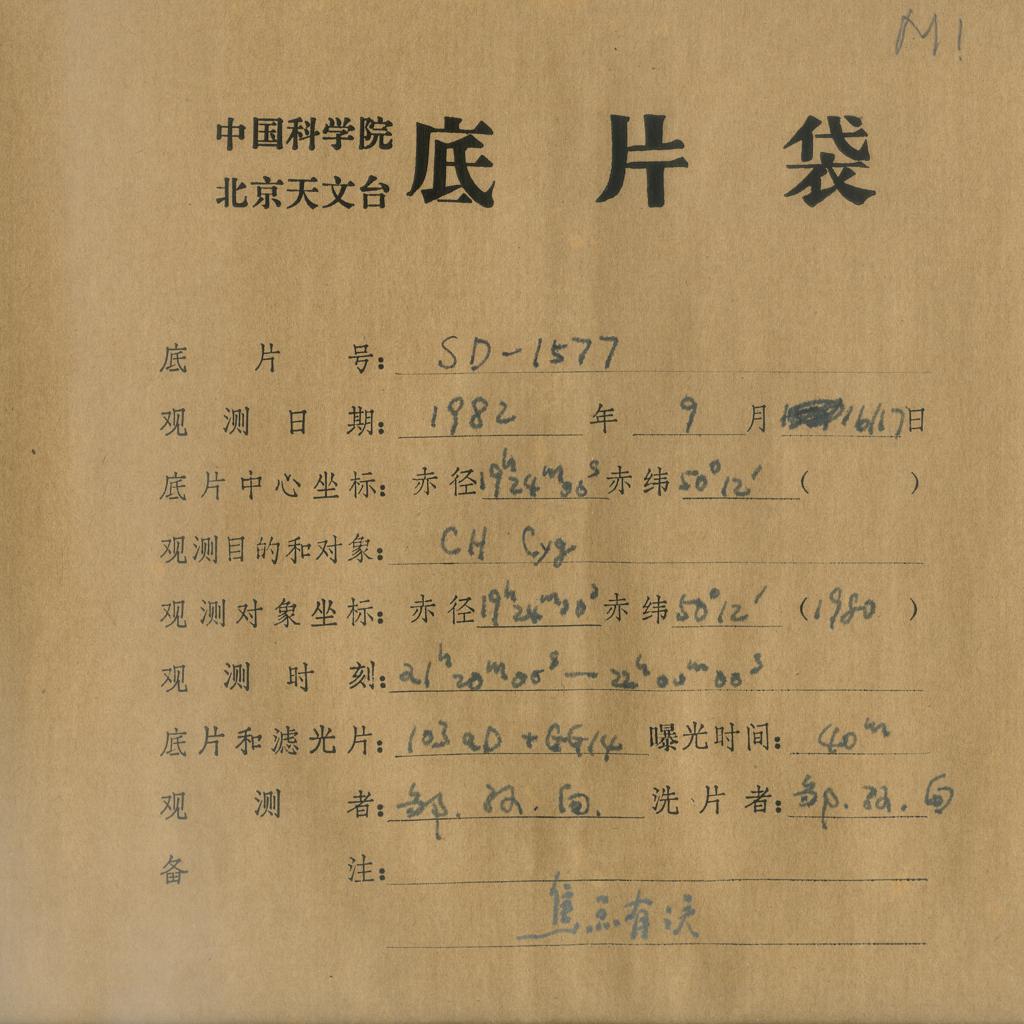 M!
中国科学院
北京天文台 底片袋
底片号: SD-1577
观测日期: 1982 年 9 月 16/17日
底片中心坐标: 赤径 19ʰ24ᵐ00ˢ 赤纬 50°12′ ( )
观测目的和对象: CH Cyg
观测对象坐标: 赤径 19ʰ24ᵐ00ˢ 赤纬 50°12′ (1980)
观测时刻: 21ʰ20ᵐ00ˢ — 22ʰ00ᵐ00ˢ
底片和滤光片: 103aD + GG14 曝光时间: 40ᵐ
观测者: 邹. 孙.
洗片者: 邹. 孙.
备注:
焦点有误